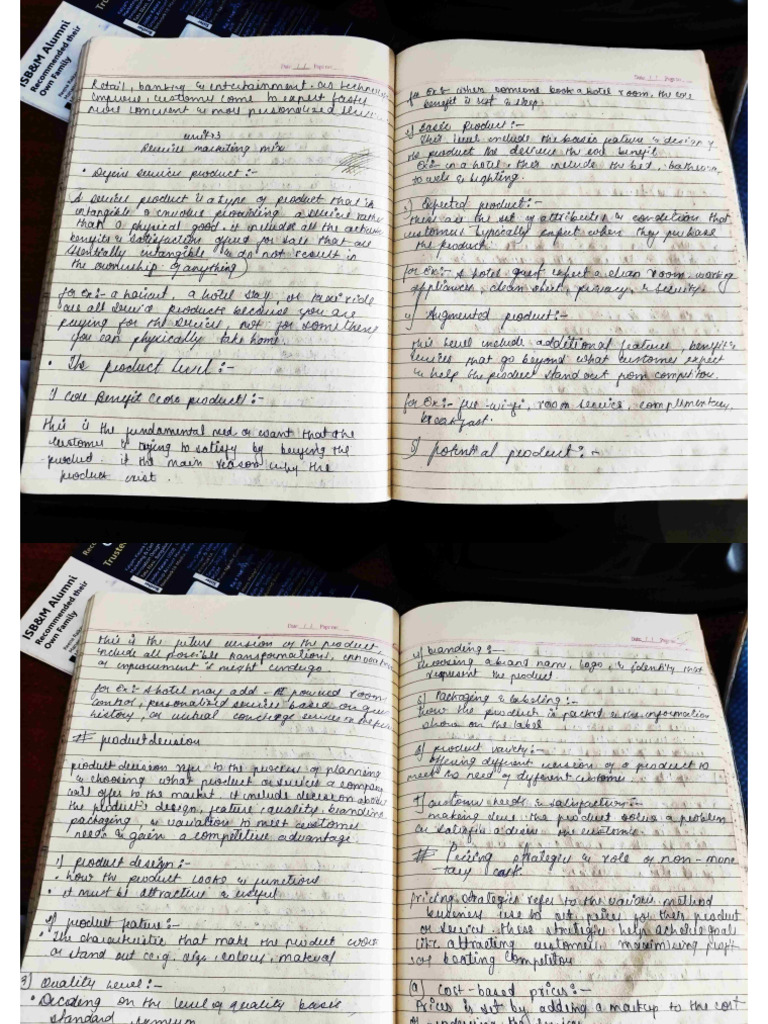 ISB&M Alumni
Recommended their
Own Family
Date / / Page no:
Retail, banking & entertainment. As technology
improves, customer come to expect faster
more convient & more personalized service
unit-3
Service marketing mix
• service product :-
A service product is a type of product that is
intangible & involves providing a service rather
than a physical good. it include all the activities
benefits & satisfaction offered for sale that are
essentially intangible & do not result in
the ownership of anything)
for Ex:- a haircut, a hotel stay, or taxi ride
are all service products because you are
paying for the service, not for something
you can physically take home.
• The product level :-
1) Core Benefit (core product) :-
this is the fundamental need or want that the
customer is trying to satisfy by buying the
product. it the main reason why the
product exist.
Date / / Page no:
for Ex:- when someone book a hotel room, the core
benefit is rest & sleep.
2) Basic product :-
This level include the basic feature & design of
the product the deliver the core benefit.
Ex:- in a hotel, this include the bed, bathroom
towels & lighting.
3) Expected product :-
these are the set of attributes & condition that
customers typically expect when they purchase
the product.
for Ex:- A hotel guest expect a clean room, working
appliances, clean sheet, privacy & security.
4) Augmented product :-
this level include additional features, benefits
services that go beyond what customer expect
& help the product stand out from competitor.
for Ex:- free wi-fi, room service, complimentary
breakfast.
5) potential product :-
ISB&M Alumni
Recommended their
Own Family
Date / / Page no:
this is the future version of the product,
include all possible transformations, innovation
or improvement might undergo
for Ex:- A hotel may add - AI powered room
control, personalized service based on guest
history, or virtual concierge service in the
# product decision
product decision refer to the process of planning
& choosing what product or services a company
will offer to the market. it include decision about
the product's design, feature, quality, branding
packaging, & variation to meet customer
needs & gain a competitive advantage
1) product design :-
• how the product looks & functions
• it must be attractive & useful
2) product feature :-
• The characteristic that make the product work
or stand out (e.g. size, colour, material
3) Quality Level :-
• Deciding on the level of quality basic,
standard, premium
Date / / Page no:
4) branding :-
choosing a brand name, logo, & identity that
represent the product
5) Packaging & labeling :-
how the product is packed & the information
show on the label
6) product variety :-
offering different version of a product to
meet the need of different customer.
7) customer needs & satisfaction :-
making sure the product solve a problem
or satisfies a desire the customer.
# Pricing strategies & role of non-mone
tary cost
pricing strategies refer to the various method
business use to set prices for their product
or services. these strategies help achieve goals
like attracting customer, maximizing profit
or beating competitor
(a) cost-based prices :-
Prices is set by adding a markup to the cost